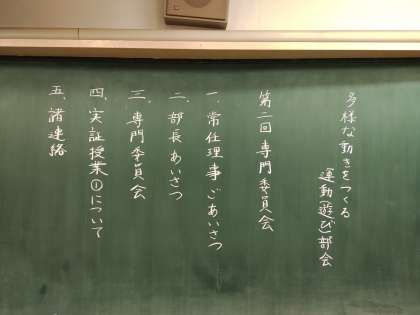 多様な動きをつくる
運動(遊び)部会
第二回 専門委員会
一、常任理事ごあいさつ
二、部長あいさつ
三、専門委員会
四、実証授業①について
五、諸連絡